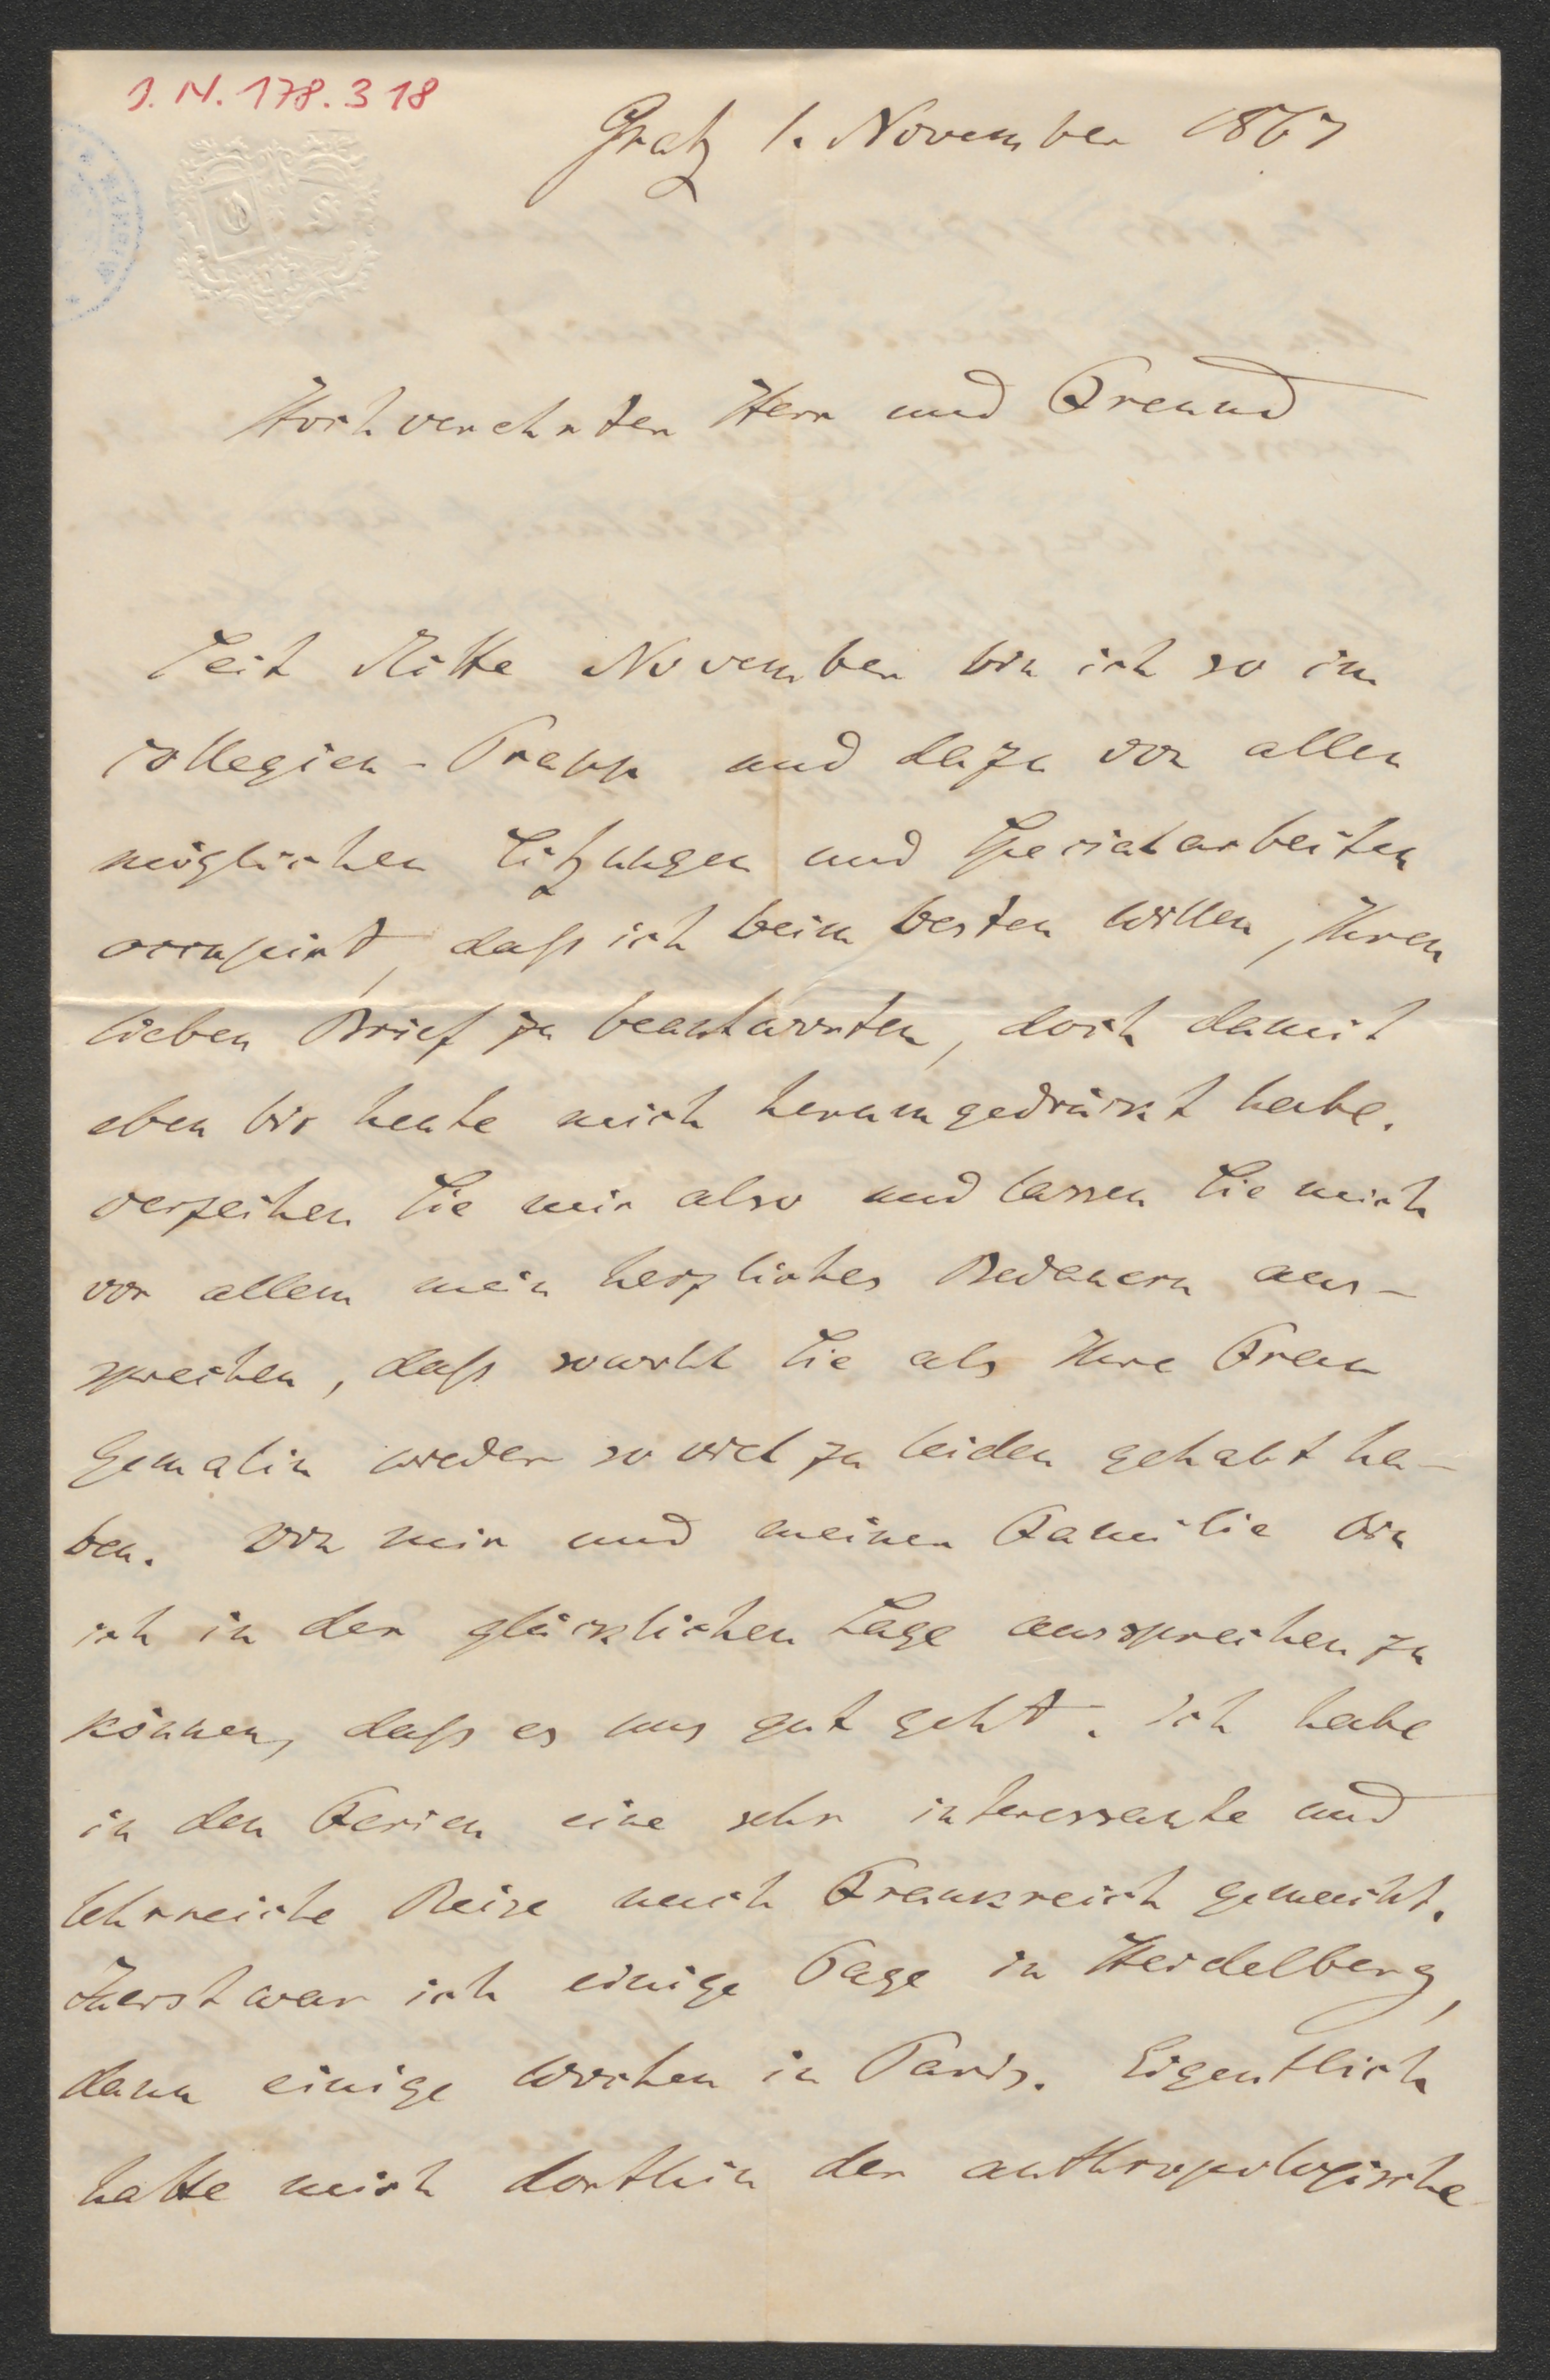 J. N. 178.318
Gratz 1. November 1867
Hochverehrter Herr und Freund
Seit Mitte November bin ich so im
Collegien-Trapp und dazu von allen
möglichen Sitzungen und Specialarbeiten
occupirt, daß ich beim besten Willen, Ihren
lieben Brief zu beantworten, doch damit
eben bis heute mich herumgedrückt habe.
Verzeihen Sie mir also und lassen Sie mich
vor allem mein herzliches Bedauern aus-
sprechen, daß sowohl Sie als Ihre Frau
Gemalin wieder so viel zu leiden gehabt ha-
ben. Von mir und meiner Familie bin
ich in der glücklichen Lage aussprechen zu
können, daß es uns gut geht. Ich habe
in den Ferien eine sehr interessante und
lehrreiche Reise nach Frankreich gemacht.
Zuerst war ich einige Tage in Heidelberg,
dann einige Wochen in Paris. Eigentlich
hatte mich dorthin der anthropologische